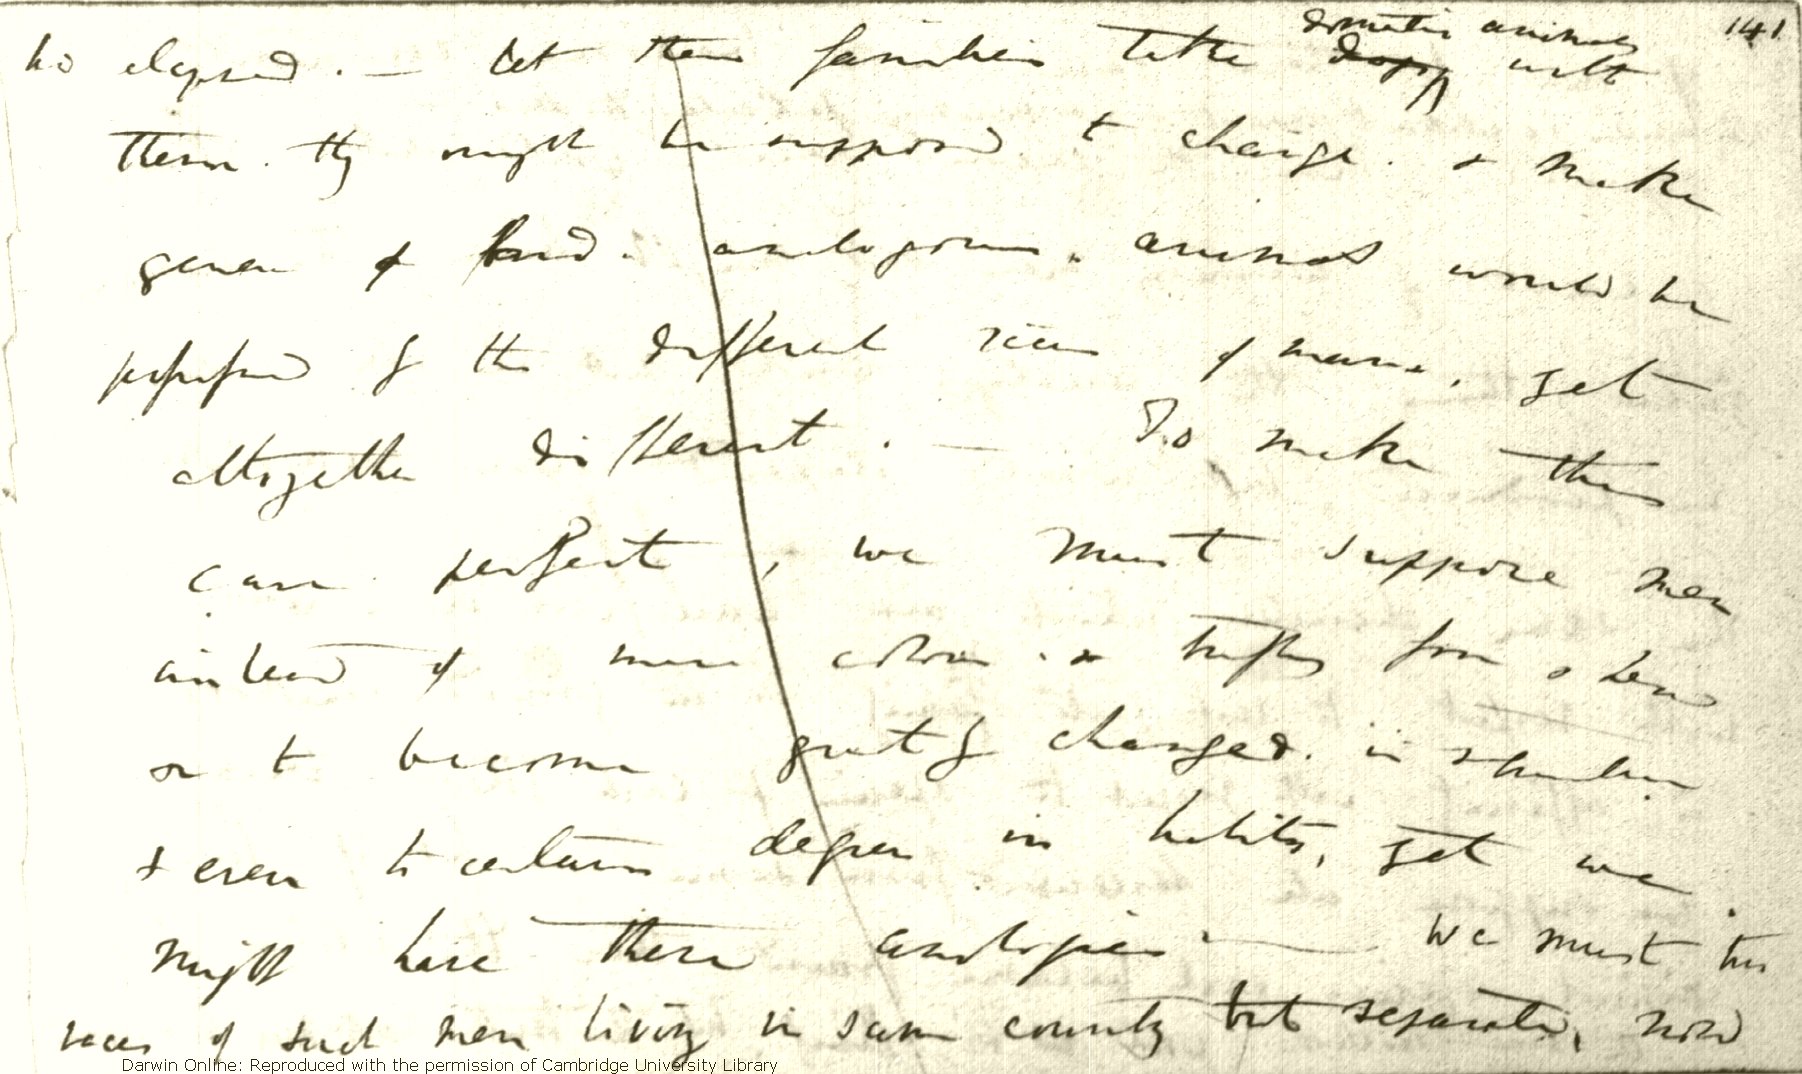 141
be elapsed. — let these families take domestic animals dogs with
them. they might be supposed to change. & make
genera & kind. analogous. animals would be
possessed by the different races of mans. yet
altogether different. — To make this
case perfect, we must suppose man
instead of mere colour. & trifling form & head
or to become greatly changed. in structure
& even to certain degree in habits, yet we
might have these analogies. — We must this
races of such men living in same country but separate, now
Darwin Online: Reproduced with the permission of Cambridge University Library